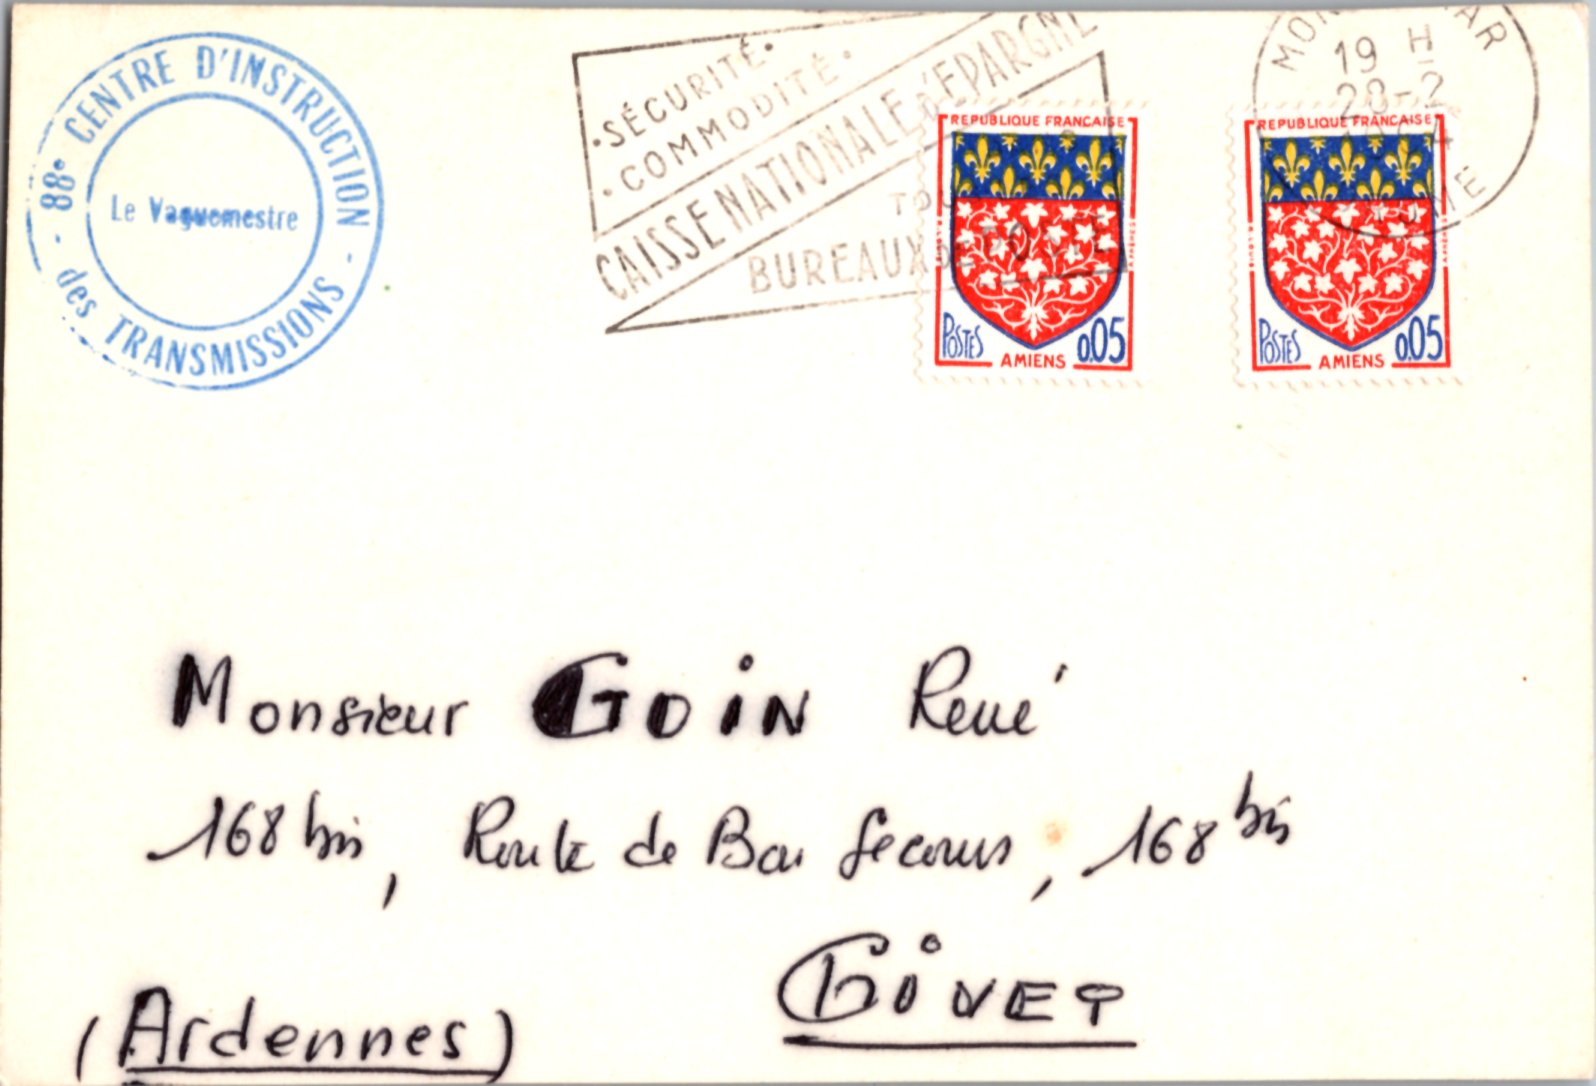 88e CENTRE D'INSTRUCTION - des TRANSMISSIONS -
Le Vaguemestre
·SÉCURITÉ·
·COMMODITÉ·
CAISSE NATIONALE d'EPARGNE
BUREAUX DE
19 H
REPUBLIQUE FRANCAISE
POSTES
0,05
AMIENS
REPUBLIQUE FRANCAISE
POSTES
0,05
AMIENS
Monsieur GOIN René
168 bis, Route de Bon Secours, 168 bis
GIVET
(Ardennes)